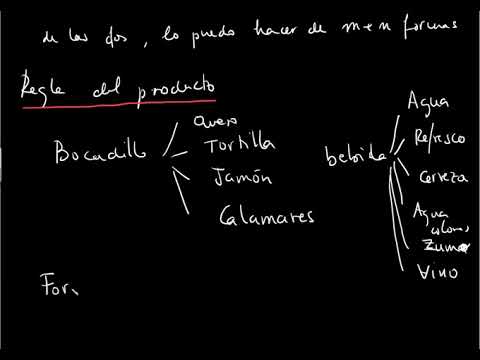 de las dos, lo puedo hacer de m+n formas
Regla del producto
Bocadillo
Queso
Tortilla
Jamón
Calamares
bebida
Agua
Refresco
Cerveza
Agua
Zumo
Vino
For